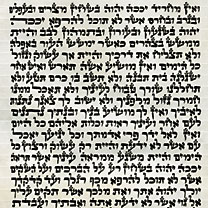 ואין מחריד יככה יהוה בשחין מצרים ובעפלים
ובגרב ובחרס אשר לא תוכל להרפא יככה
יהוה בשגעון ובעורון ובתמהון לבב והיית
ממשש בצהרים כאשר ימשש העור באפלה
ולא תצליח את דרכיך והיית אך עשוק וגזול
כל הימים ואין מושיע אשה תארש ואיש אחר
ישגלנה בית תבנה ולא תשב בו כרם תטע ולא
תחללנו שורך טבוח לעיניך ולא תאכל ממנו
חמרך גזול מלפניך ולא ישוב לך צאנך נתנות
לאיביך ואין לך מושיע בניך ובנתיך נתנים לעם
אחר ועיניך ראות וכלות אליהם כל היום
ואין לאל ידך פרי אדמתך וכל יגיעך יאכל
עם אשר לא ידעת והיית רק עשוק ורצוץ כל
הימים והיית משגע ממראה עיניך אשר תראה
יככה יהוה בשחין רע על הברכים ועל השקים
אשר לא תוכל להרפא מכף רגלך ועד קדקדך
יולך יהוה אתך ואת מלכך אשר תקים עליך
אל גוי אשר לא ידעת אתה ואבתיך ועבדת